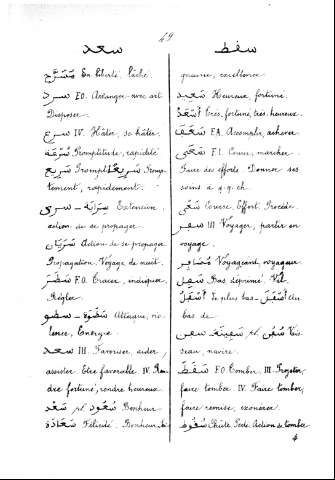 49
سعد
مُسَرَّح En liberté, lâché.
سرد F.O. Arranger avec art
Disposer.
سرع IV. Hâter, se hâter.
سُرْعَة Promptitude, rapidité
سَرِيع Prompt سَرِيعًا Promp-
tement, rapidement.
سرى – سِرَايَة Extension,
action de se propager.
سَرَيَان Action de se propager
Propagation. Voyage de nuit.
سطر F.O. Tracer, indiquer
Régler
سطو – سَطْوَة Attaque, vio-
lence, Energie.
سعد III. Favoriser, aider,
assister Etre favorable IV. Ren-
dre fortuné, rendre heureux.
سَعْد pl. سُعُود Bonheur
سَعَادَة Félicité. Bonheur
سقط
quence, excellence.
سَعِيد Heureux, fortuné.
أَسْعَد Très fortuné, très heureux.
F.A. Accomplir, achever.
سَعَى F.I. Courir, marcher.
Faire des efforts. Donner ses
soins à q.q. ch.
سَعْي Course, Effort, Procédé.
سفر III Voyager, partir en
voyage.
مُسَافِر Voyageant, voyageur
سَفِل Bas, déprimé, Vil.
أَسْفَل Le plus bas – أَسْفَل Au
bas de
سفن – سَفِينَة pl. سُفُن Vais-
seau, navire.
سَقَط F.O. Tomber. III. Projeter,
faire tomber IV. Faire tomber,
faire remise, exonérer.
سُقُوط Chûte, Perte, Action de tomber
4